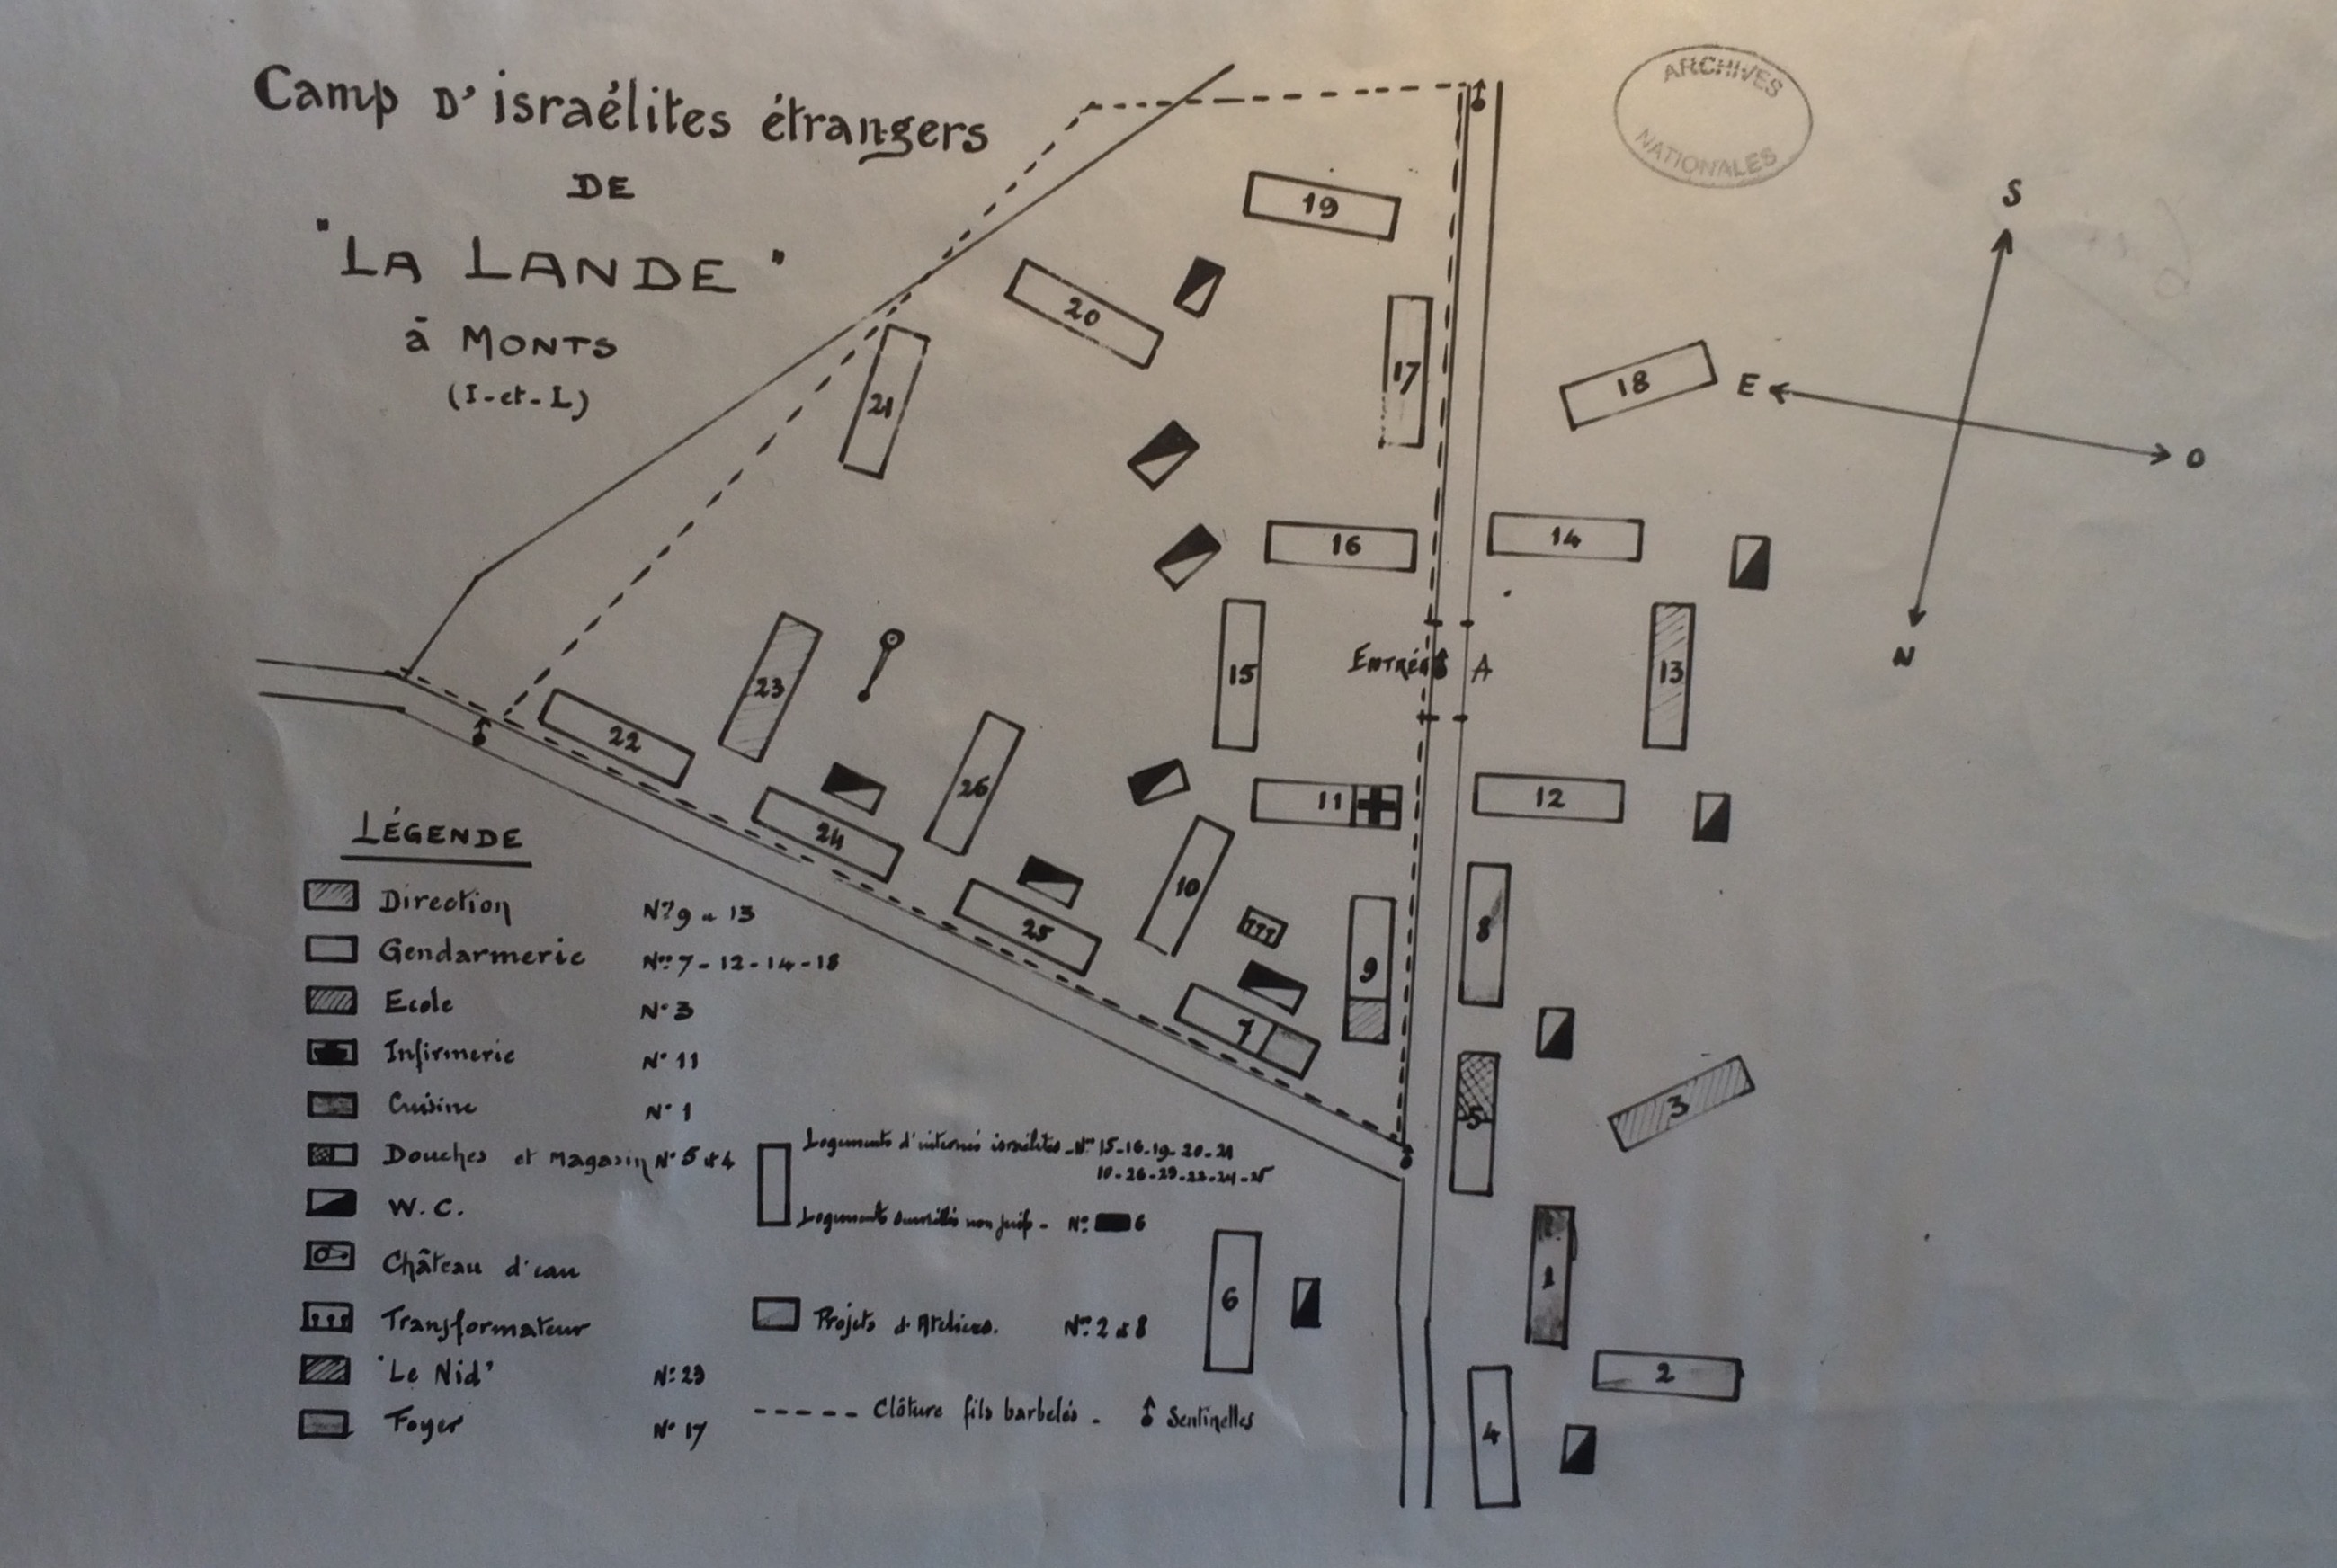 Camp D'israélites étrangers
DE
"LA LANDE"
à MONTS
(I-et-L)
ARCHIVES
NATIONALES
S
E
O
N
19
20
17
18
21
16
14
15
Entrée
A
13
23
22
26
11
12
24
10
25
8
9
7
5
3
1
6
2
4
LÉGENDE
Direction N° 9 - 13
Gendarmerie Nos 7-12-14-18
Ecole N° 3
Infirmerie N° 11
Cuisine N° 1
Douches et magasin N° 5 et 4
W.C.
Château d'eau
Transformateur
'Le Nid' N° 23
Foyer N° 17
Logements d'internés israélites - Nos 15-16-19-20-21
10-26-23-22-24-25
Logements non juifs - N° 6
Projets d'Ateliers. Nos 2 et 8
Clôture fils barbelés -
Sentinelles